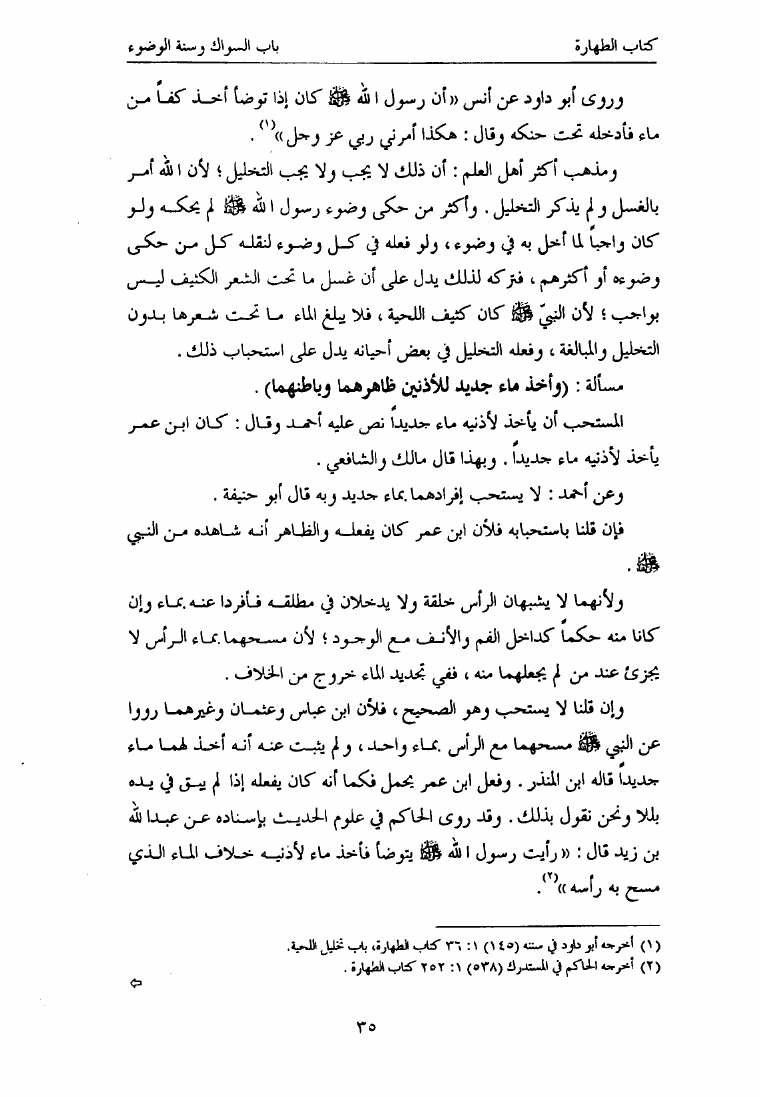 كتاب الطهارة باب السواك وسنة الوضوء
وروى أبو داود عن أنس «أن رسول الله ﷺ كان إذا توضأ أخذ كفاً من
ماء فأدخله تحت حنكه وقال : هكذا أمرني ربي عز وجل»(١) .
ومذهب أكثر أهل العلم : أن ذلك لا يجب ولا يجب التخليل ؛ لأن الله أمر
بالغسل ولم يذكر التخليل . وأكثر من حكى وضوء رسول الله ﷺ لم يحكه ولو
كان واجباً لما أخل به في وضوء ، ولو فعله في كل وضوء لنقله كل من حكى
وضوءه أو أكثرهم ، فتركه لذلك يدل على أن غسل ما تحت الشعر الكثيف ليس
بواجب ؛ لأن النبيّ ﷺ كان كثيف اللحية ، فلا يبلغ الماء ما تحت شعرها بدون
التخليل والمبالغة ، وفعله التخليل في بعض أحيانه يدل على استحباب ذلك .
مسألة : (وأخذ ماء جديد للأذنين ظاهرهما وباطنهما) .
المستحب أن يأخذ لأذنيه ماء جديداً نص عليه أحمد وقال : كان ابن عمر
يأخذ لأذنيه ماء جديداً . وبهذا قال مالك والشافعي .
وعن أحمد : لا يستحب إفرادهما بماء جديد وبه قال أبو حنيفة .
فإن قلنا باستحبابه فلأن ابن عمر كان يفعله والظاهر أنه شاهده من النبي
ﷺ .
ولأنهما لا يشبهان الرأس خلقة ولا يدخلان في مطلقه فأفردا عنه بماء وإن
كانا منه حكماً كداخل الفم والأنف مع الوجود ؛ لأن مسحهما بماء الرأس لا
يجزئ عند من لم يجعلهما منه ، ففي تجديد الماء خروج من الخلاف .
وإن قلنا لا يستحب وهو الصحيح ، فلأن ابن عباس وعثمان وغيرهما رووا
عن النبي ﷺ مسحهما مع الرأس بماء واحد ، ولم يثبت عنه أنه أخذ لهما ماء
جديداً قاله ابن المنذر . وفعل ابن عمر يحمل فكما أنه كان يفعله إذا لم يبق في يده
بللا ونحن نقول بذلك . وقد روى الحاكم في علوم الحديث بإسناده عن عبدالله
بن زيد قال : «رأيت رسول الله ﷺ يتوضأ فأخذ ماء لأدنيه خلاف الماء الذي
مسح به رأسه»(٢).
(١) أخرجه أبو داود في سننه (١٤٥) ١: ٣٦ كتاب الطهارة، باب تخليل اللحية.
(٢) أخرجه الحاكم في المستدرك (٥٣٨) ١: ٢٥٢ كتاب الطهارة .
⇦
٣٥